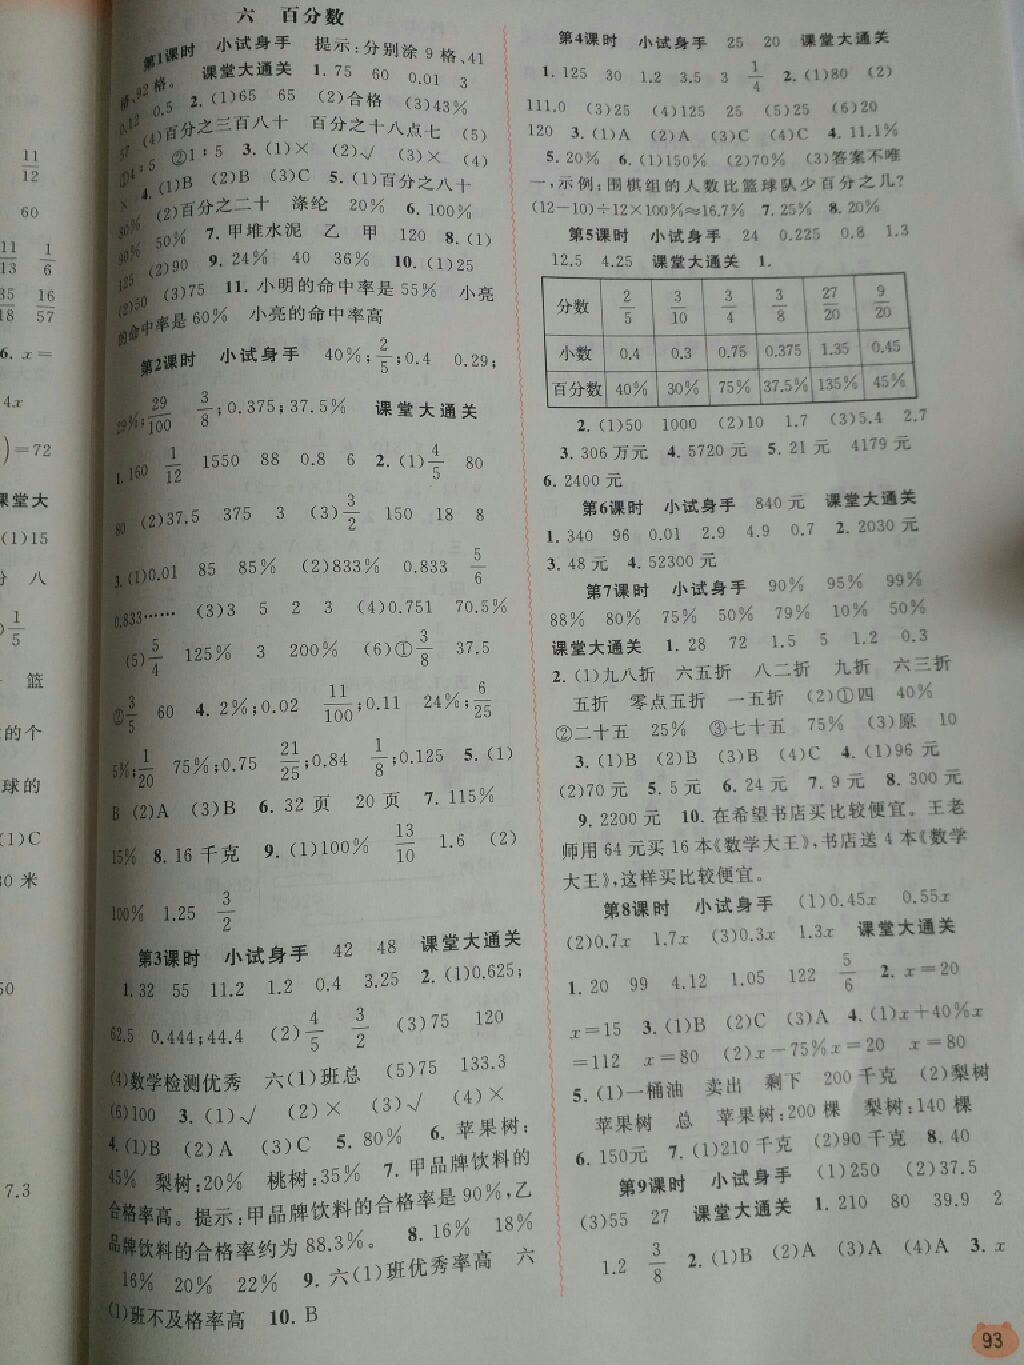 六 百分数
第1课时 小试身手 提示:分别涂9格、41
格、92格。 课堂大通关 1. 75 60 0.01 3
0.12 0.5 2. (1)65 65 (2)合格 (3)43%
57 (4)百分之三百八十 百分之十八点七 (5)
①4∶5 ②1∶5 3. (1)× (2)√ (3)× (4)
× 4. (1)B (2)B (3)C 5. (1)百分之八十
80% (2)百分之二十 涤纶 20% 6. 100%
90% 50% 7. 甲堆水泥 乙 甲 120 8. (1)
125 (2)90 9. 24% 40 36% 10. (1)25
(2)50 (3)75 11. 小明的命中率是55% 小亮
的命中率是60% 小亮的命中率高
第2课时 小试身手 40%;2/5;0.4 0.29;
29%;29/100 3/8;0.375;37.5% 课堂大通关
1. 160 1/12 1550 88 0.8 6 2. (1)4/5 80
80 (2)37.5 375 3 (3)3/2 150 18 8
3. (1)0.01 85 85% (2)833% 0.833 5/6
0.833…… (3)3 5 2 3 (4)0.751 70.5%
(5)5/4 125% 3 200% (6)①3/8 37.5
②3/5 60 4. 2%;0.02 11/100;0.11 24%;6/25
5%;1/20 75%;0.75 21/25;0.84 1/8;0.125 5. (1)
B (2)A (3)B 6. 32页 20页 7. 115%
15% 8. 16千克 9. (1)100% 13/10 1.6 (2)
100% 1.25 3/2
第3课时 小试身手 42 48 课堂大通关
1. 32 55 11.2 1.2 0.4 3.25 2. (1)0.625;
62.5 0.444;44.4 (2)4/5 3/2 (3)75 120
(4)数学检测优秀 六(1)班总 (5)75 133.3
(6)100 3. (1)√ (2)× (3)√ (4)×
4. (1)B (2)A (3)C 5. 80% 6. 苹果树:
45% 梨树:20% 桃树:35% 7. 甲品牌饮料的
合格率高。提示:甲品牌饮料的合格率是90%,乙
品牌饮料的合格率约为88.3%。 8. 16% 18%
16% 20% 22% 9. 六(1)班优秀率高 六
(1)班不及格率高 10. B
第4课时 小试身手 25 20 课堂大通关
1. 125 30 1.2 3.5 3 1/4 2. (1)80 (2)
111.0 (3)25 (4)125 25 (5)25 (6)20
120 3. (1)A (2)A (3)C (4)C 4. 11.1%
5. 20% 6. (1)150% (2)70% (3)答案不唯
一,示例:围棋组的人数比篮球队少百分之几?
(12-10)÷12×100%≈16.7% 7. 25% 8. 20%
第5课时 小试身手 24 0.225 0.8 1.3
12.5 4.25 课堂大通关 1.
分数 2/5 3/10 3/4 3/8 27/20 9/20
小数 0.4 0.3 0.75 0.375 1.35 0.45
百分数 40% 30% 75% 37.5% 135% 45%
2. (1)50 1000 (2)10 1.7 (3)5.4 2.7
3. 306万元 4. 5720元 5. 21元 4179元
6. 2400元
第6课时 小试身手 840元 课堂大通关
1. 340 96 0.01 2.9 4.9 0.7 2. 2030元
3. 48元 4. 52300元
第7课时 小试身手 90% 95% 99%
88% 80% 75% 50% 79% 10% 50%
课堂大通关 1. 28 72 1.5 5 1.2 0.3
2. (1)九八折 六五折 八二折 九折 六三折
五折 零点五折 一五折 (2)①四 40%
②二十五 25% ③七十五 75% (3)原 10
3. (1)B (2)B (3)B (4)C 4. (1)96元
(2)70元 5. 5元 6. 24元 7. 9元 8. 300元
9. 2200元 10. 在希望书店买比较便宜。王老
师用64元买16本《数学大王》,书店送4本《数学
大王》,这样买比较便宜。
第8课时 小试身手 (1)0.45x 0.55x
(2)0.7x 1.7x (3)0.3x 1.3x 课堂大通关
1. 20 99 4.12 1.05 122 5/6 2. x=20
x=15 3. (1)B (2)C (3)A 4. (1)x+40%x
=112 x=80 (2)x-75%x=20 x=80
5. (1)一桶油 卖出 剩下 200千克 (2)梨树
苹果树 总 苹果树:200棵 梨树:140棵
6. 150元 7. (1)210千克 (2)90千克 8. 40
第9课时 小试身手 (1)250 (2)37.5
(3)55 27 课堂大通关 1. 210 80 39.9 2
1.2 3/8 2. (1)B (2)A (3)A (4)A 3. x
93
11/12
60
11/13 1/6
16/57
6. x=
4x
)=72
课堂大
(1)15
八
1/5
篮
的个
球的
(1)C
30米
50
7.3